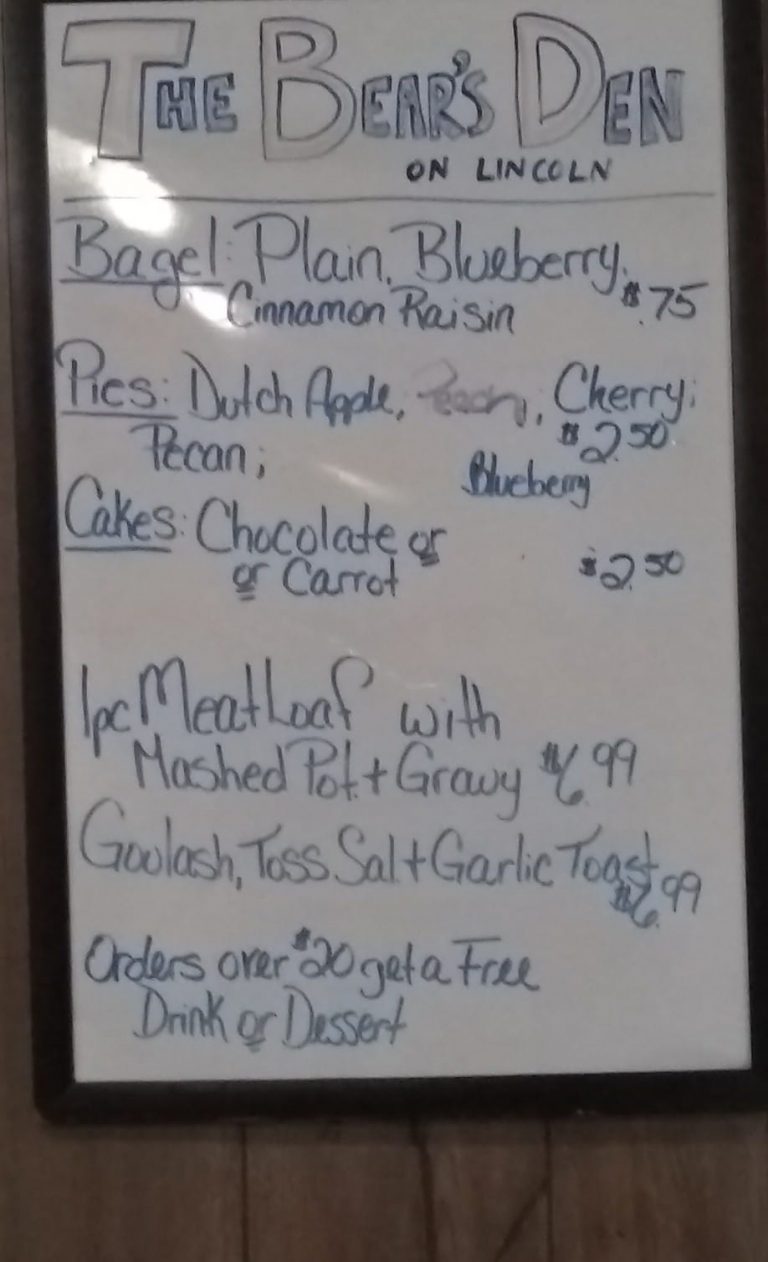 THE BEAR'S DEN
ON LINCOLN
Bagel: Plain, Blueberry,
Cinnamon Raisin $.75
Pies: Dutch Apple, Peach, Cherry;
Pecan; $2.50
Blueberry
Cakes: Chocolate or
or Carrot $2.50
1pc MeatLoaf with
Mashed Pot. + Gravy $6.99
Goulash, Toss Sal + Garlic Toast
$6.99
Orders over $20 get a Free
Drink or Dessert